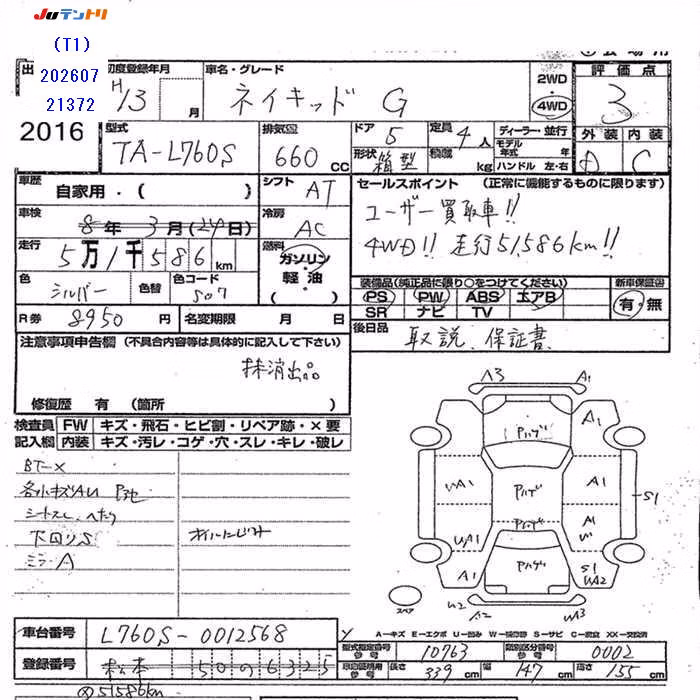 JUテントリ
(T1)
202607
21372
2016
初度登録年月
H13 月
車名・グレード
ネイキッド G
2WD
4WD
評価点
3
外装 内装
D C
型式
TA-L760S
排気量
660 cc
ドア
5
形状
箱型
定員
4人
積載
kg
ディーラー・並行
モデル年式 年
ハンドル 左・右
車歴
自家用・( )
シフト
AT
車検
8年3月(24日)
冷房
AC
走行
5万1千586km
燃料
ガソリン
軽油
( )
色
シルバー
色替
色コード
S07
R券
8950円
名変期限 月 日
セールスポイント (正常に機能するものに限ります)
ユーザー買取車!!
4WD!! 走行51,586km!!
装備品(純正品に限り○をつけてください)
PS PW ABS エアB
SR ナビ TV
新車保証書
有・無
後日品
取説、保証書
注意事項申告欄 (不具合内容等は具体的に記入して下さい)
抹消出品
修復歴 有 (箇所 )
検査員記入欄
FW キズ・飛石・ヒビ割・リペア跡・×要
内装 キズ・汚レ・コゲ・穴・スレ・キレ・破レ
BT-×
各小キズAU
シートスレ、へたり
下回りS
ミラーA
オイルにじみ
A3 A1
Pハゲ A1
UA1 Pハゲ A1
S1
Pハゲ
UA1
A1 Pハゲ S1
UA2
U2 A2 UA3
スペア
A−キズ E−エクボ U−凹み W−補修跡 S−サビ C−腐食 XX−交換済
車台番号
L760S-0012568
登録番号
松本 500 6325
型式指定番号
10763
類別区分番号
0002
長さ 339cm 幅 147cm 高さ 155cm
51586km